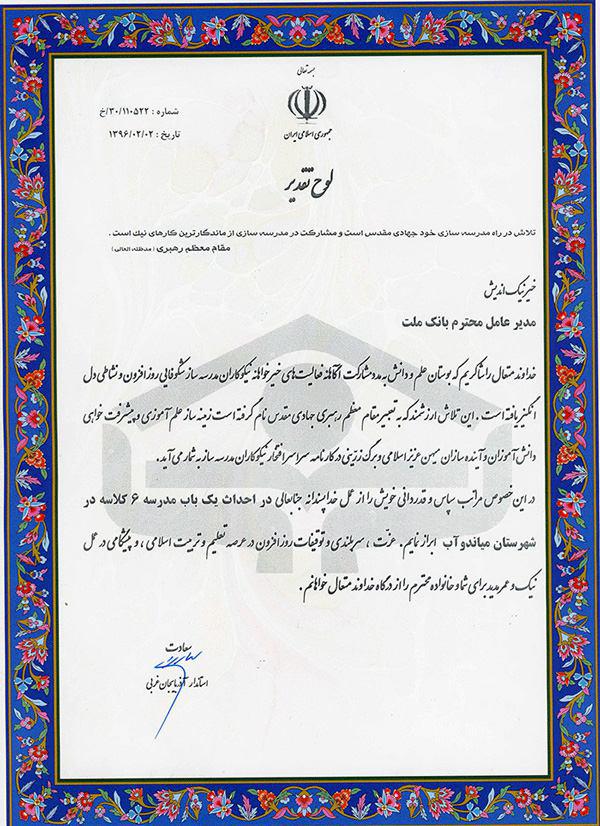 بسمه تعالی
جمهوری اسلامی ایران
شماره : ۳۰/۱۱۰۵۲۲/خ
تاریخ : ۱۳۹۶/۰۲/۰۲
لوح تقدیر
تلاش در راه مدرسه سازی خود جهادی مقدس است و مشارکت در مدرسه سازی از ماندگارترین کارهای نیك است .
مقام معظم رهبری (مدظله العالی)
خیر نیک اندیش
مدیر عامل محترم بانک ملت
خداوند متعال را شاکریم که بوستان علم و دانش به مدد مشارکت آگاهانه فعالیت‌های خیرخواهانه نیکوکاران مدرسه ساز شکوفایی روزافزون و نشاطی دل
انگیز یافته است . این تلاش ارزشمند که به تعبیر مقام معظم رهبری جهادی مقدس نام گرفته است زمینه ساز علم آموزی و پیشرفت خواهی
دانش آموزان و آینده سازان میهن عزیز اسلامی و برگ زرینی در کارنامه سراسر افتخار نیکوکاران مدرسه ساز به شمار می آید.
در این خصوص مراتب سپاس و قدردانی خویش را از عمل خداپسندانه جنابعالی در احداث یک باب مدرسه ۶ کلاسه در
شهرستان میاندوآب ابراز نمایم. عزت ، سربلندی و توفیقات روزافزون در عرصه تعلیم و تربیت اسلامی ، و پیشگامی در عمل
نیک و عمر مدید برای شما و خانواده محترم را از درگاه خداوند متعال خواهانم .
سعادت
استاندار آذربایجان غربی